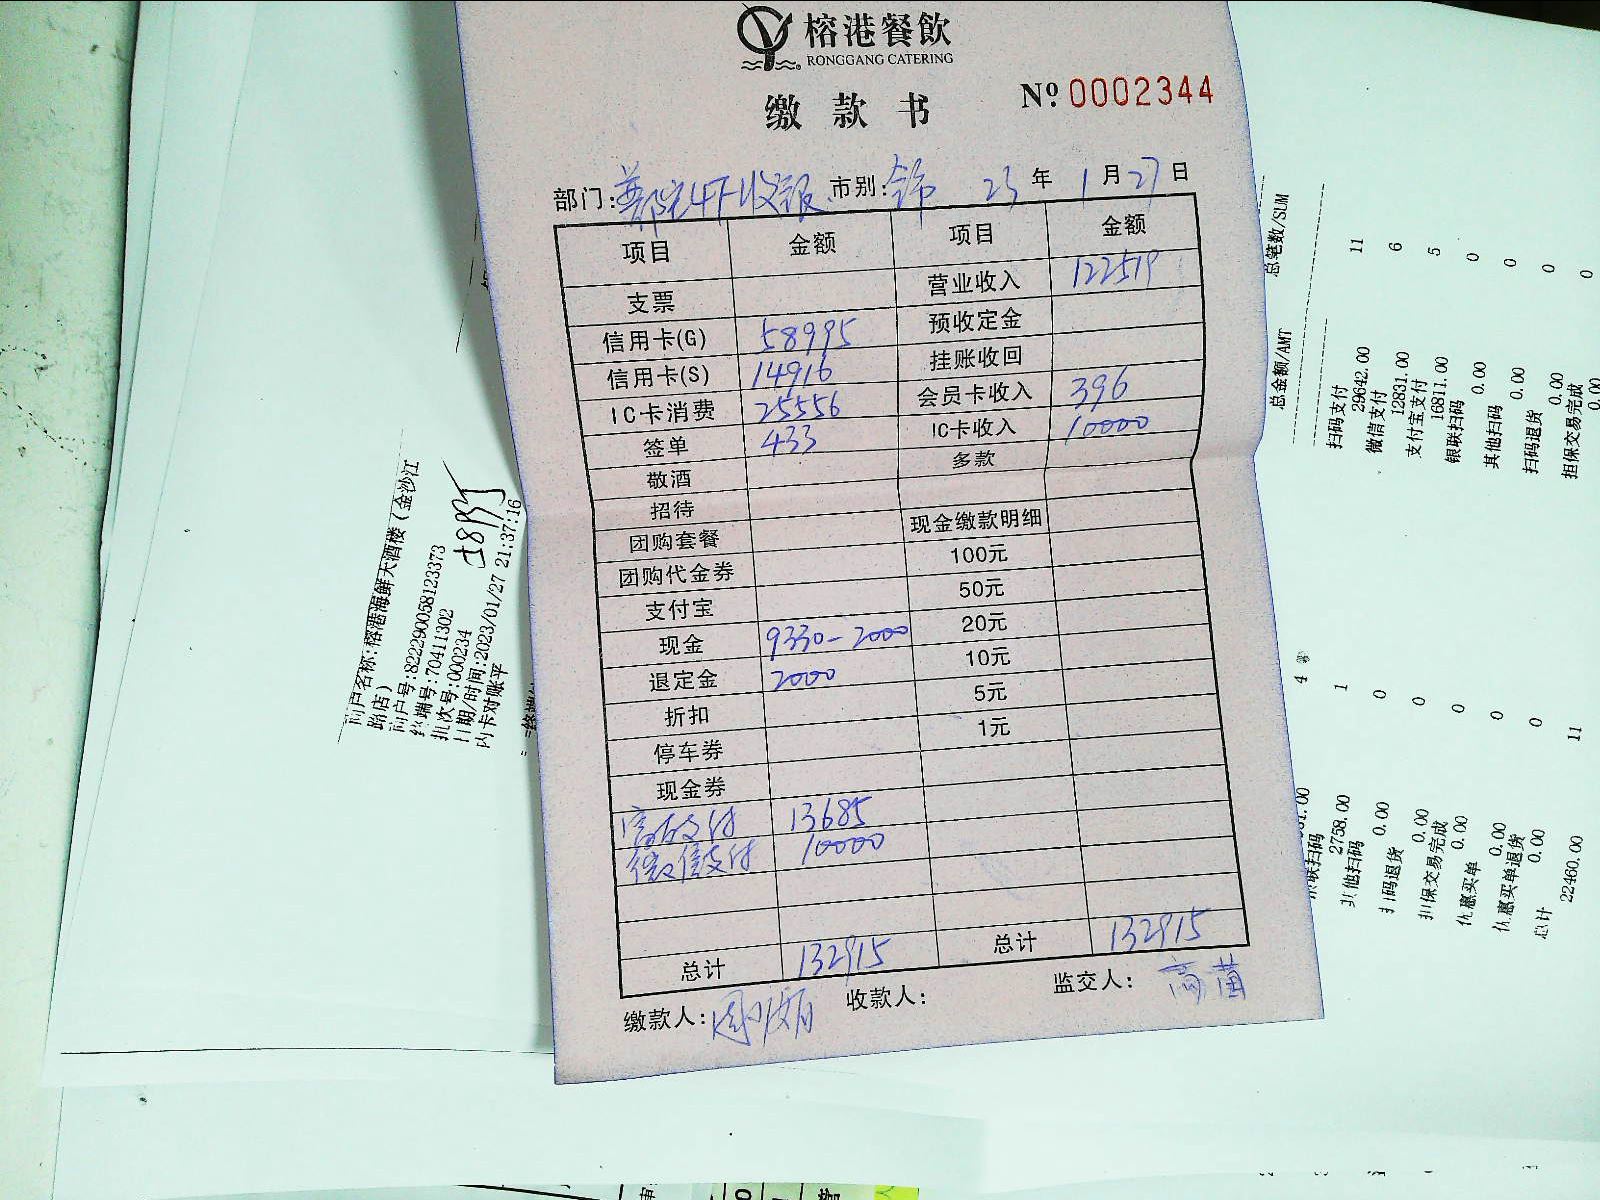 榕港餐飲
RONGGANG CATERING
缴款书
№ 0002344
部门: 4F收银 市别: 23年1月27日
项目 金额 项目 金额
支票 营业收入 122519
信用卡(G) 58995 预收定金
信用卡(S) 14916 挂账收回
IC卡消费 25556 会员卡收入 396
签单 433 IC卡收入 10000
敬酒 多款
招待
团购套餐 现金缴款明细
团购代金券 100元
支付宝 50元
现金 9330-2000 20元
退定金 2000 10元
折扣 5元
停车券 1元
现金券
支付 13685
微信支付 10000
总计 132915 总计 132915
缴款人: 收款人: 监交人: 高茵
商户名称:榕港海鲜大酒楼(金沙江
路店)
商户号:822290058123373
终端号:70411302
批次号:000234
日期/时间:2023/01/27 21:37:16
内卡对账平
58995
总金额/AMT 总笔数/SUM
扫码支付
29642.00 11
微信支付
12831.00 6
支付宝支付
16811.00 5
银联扫码
0.00 0
其他扫码
0.00 0
扫码退货
0.00 0
担保交易完成
0.00 0
4
银联扫码
2758.00 1
其他扫码
0.00 0
扫码退货
0.00 0
担保交易完成
0.00 0
优惠买单
0.00 0
优惠买单退货
0.00 0
总计
22460.00 11